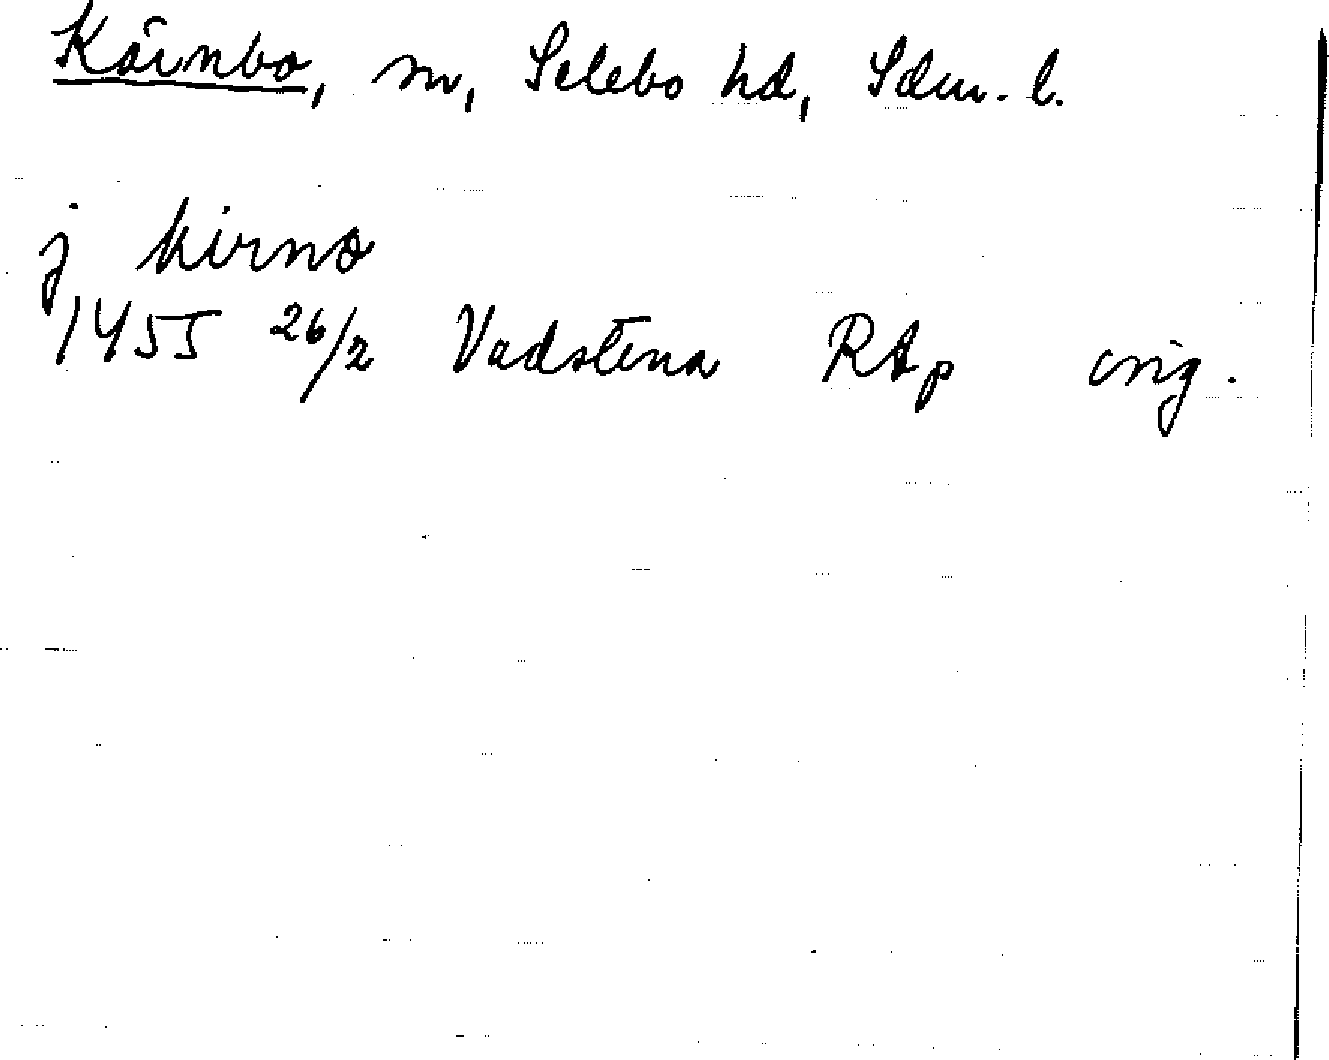 Kärnbo, sn, Selebo hd, Sdm. l.
j kirnø
1455 26/2 Vadstena RAp orig.